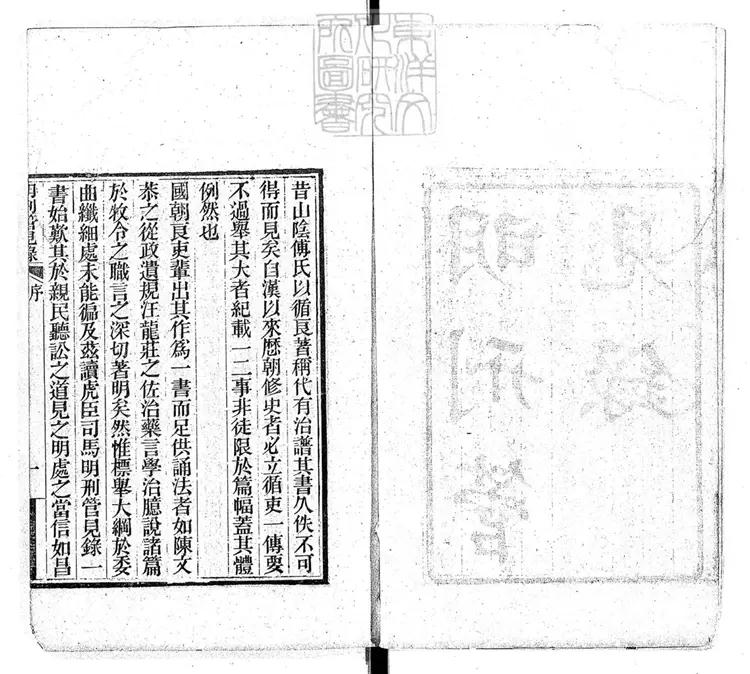 東洋文
化研究
所圖書
明刑管
見錄
昔山陰傅氏以循良著稱代有治譜其書久佚不可
得而見矣自漢以來歷朝修史者必立循吏一傳要
不過舉其大者紀載一二事非徒限於篇幅蓋其體
例然也
國朝良吏輩出其作爲一書而足供誦法者如陳文
恭之從政遺規汪龍莊之佐治藥言學治臆說諸篇
於牧令之職言之深切著明矣然惟標舉大綱於委
曲纖細處未能徧及茲讀虎臣司馬明刑管見錄一
書始歎其於親民聽訟之道見之明處之當信如昌
明刑管見錄 序 一